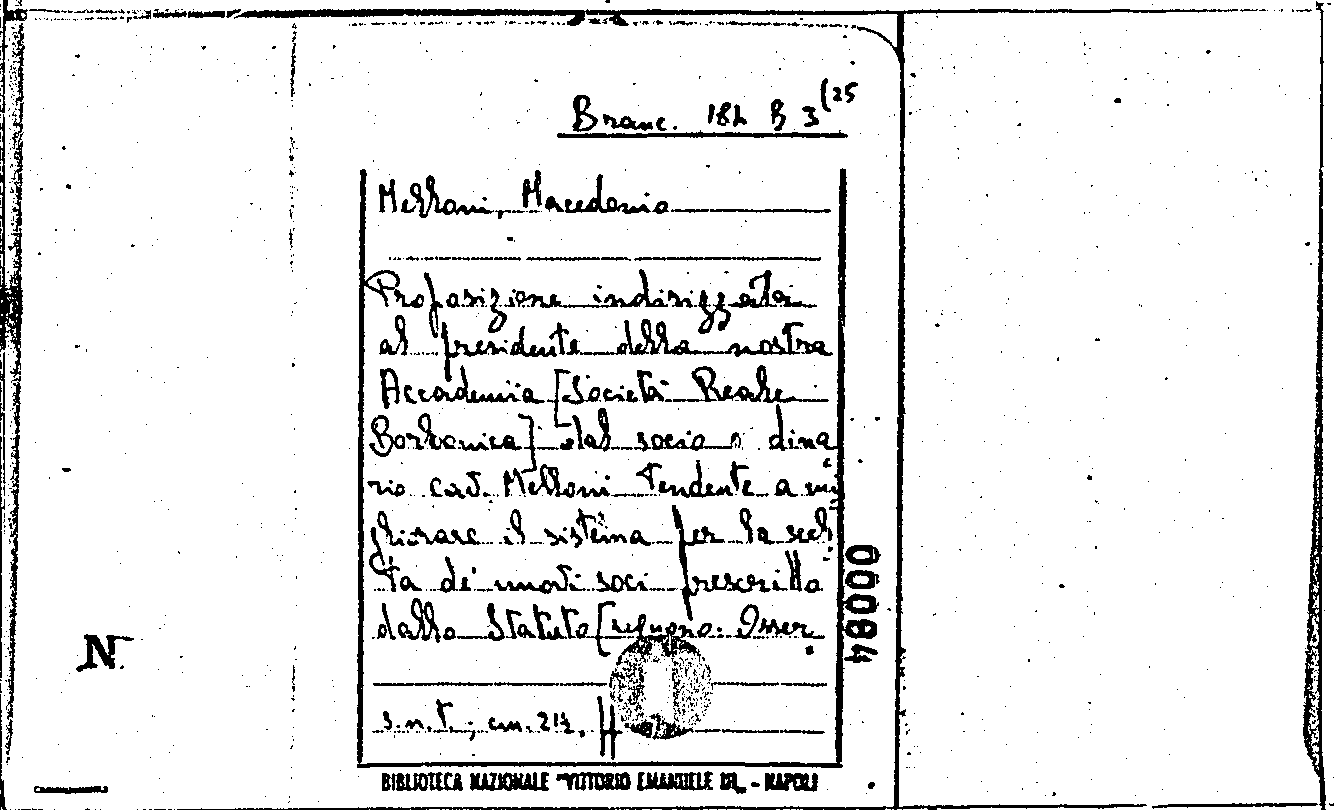 Branc. 182 B 3 (25
Melloni, Macedonio
Proposizione indirizzata
al presidente della nostra
Accademia [Società Reale
Borbonica] dal socio o dina
rio cav. Melloni tendente a mi
gliorare il sistema per la scel
ta de' nuovi soci prescritto
dallo Statuto [seguono: Osser.
s.n.t.; cm. 21½.
00084
N
BIBLIOTECA NAZIONALE "VITTORIO EMANUELE III„ - NAPOLI